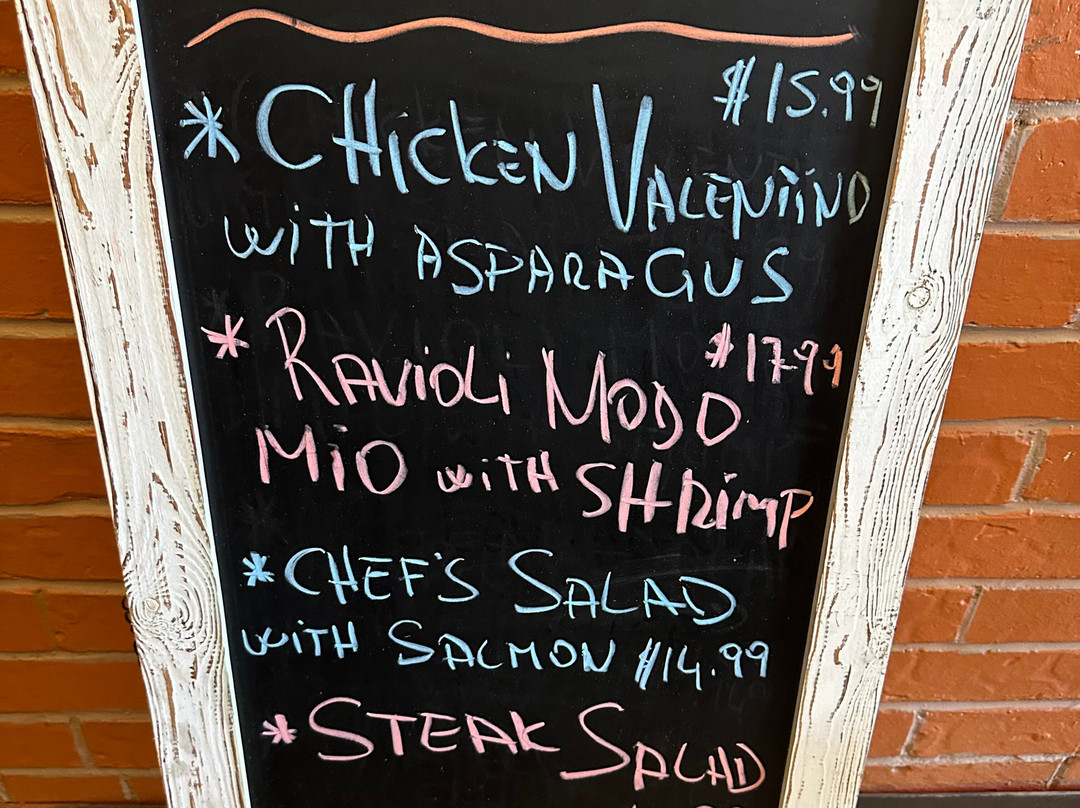 $15.99
* CHiCKEN VALENTiNO
WiTH ASPARAGUS
* RAViOLi MODO $17.99
MiO WiTH SHRimP
* CHEF'S SALAD
WiTH SALMON $14.99
* STEAK SALAD